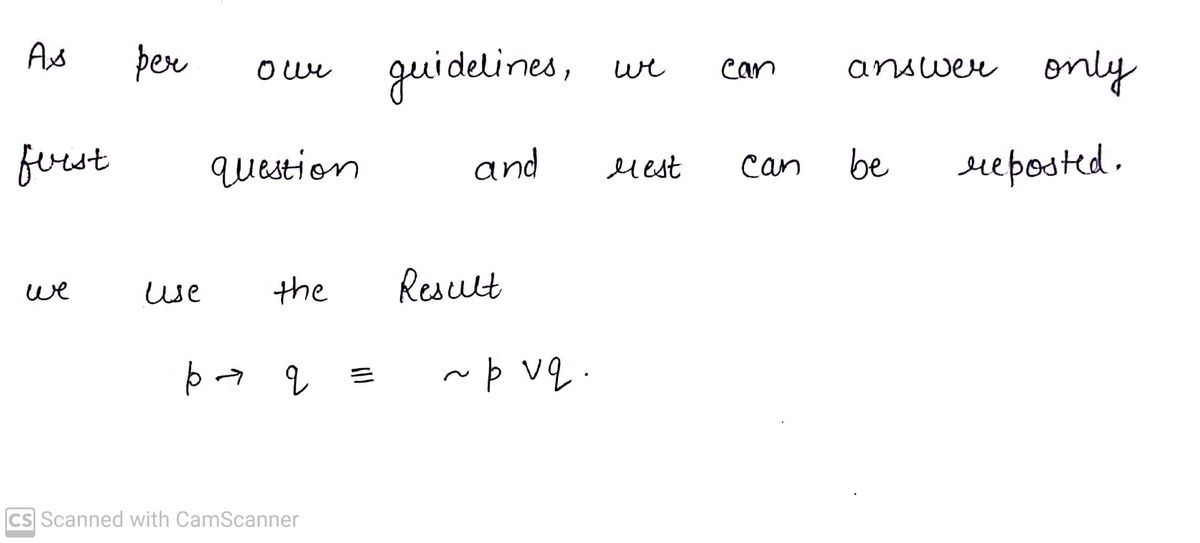 As per our guidelines, we can answer only
first question and rest can be reposted.
we use the Result
p → q ≡ ~ p ∨ q.
CS Scanned with CamScanner